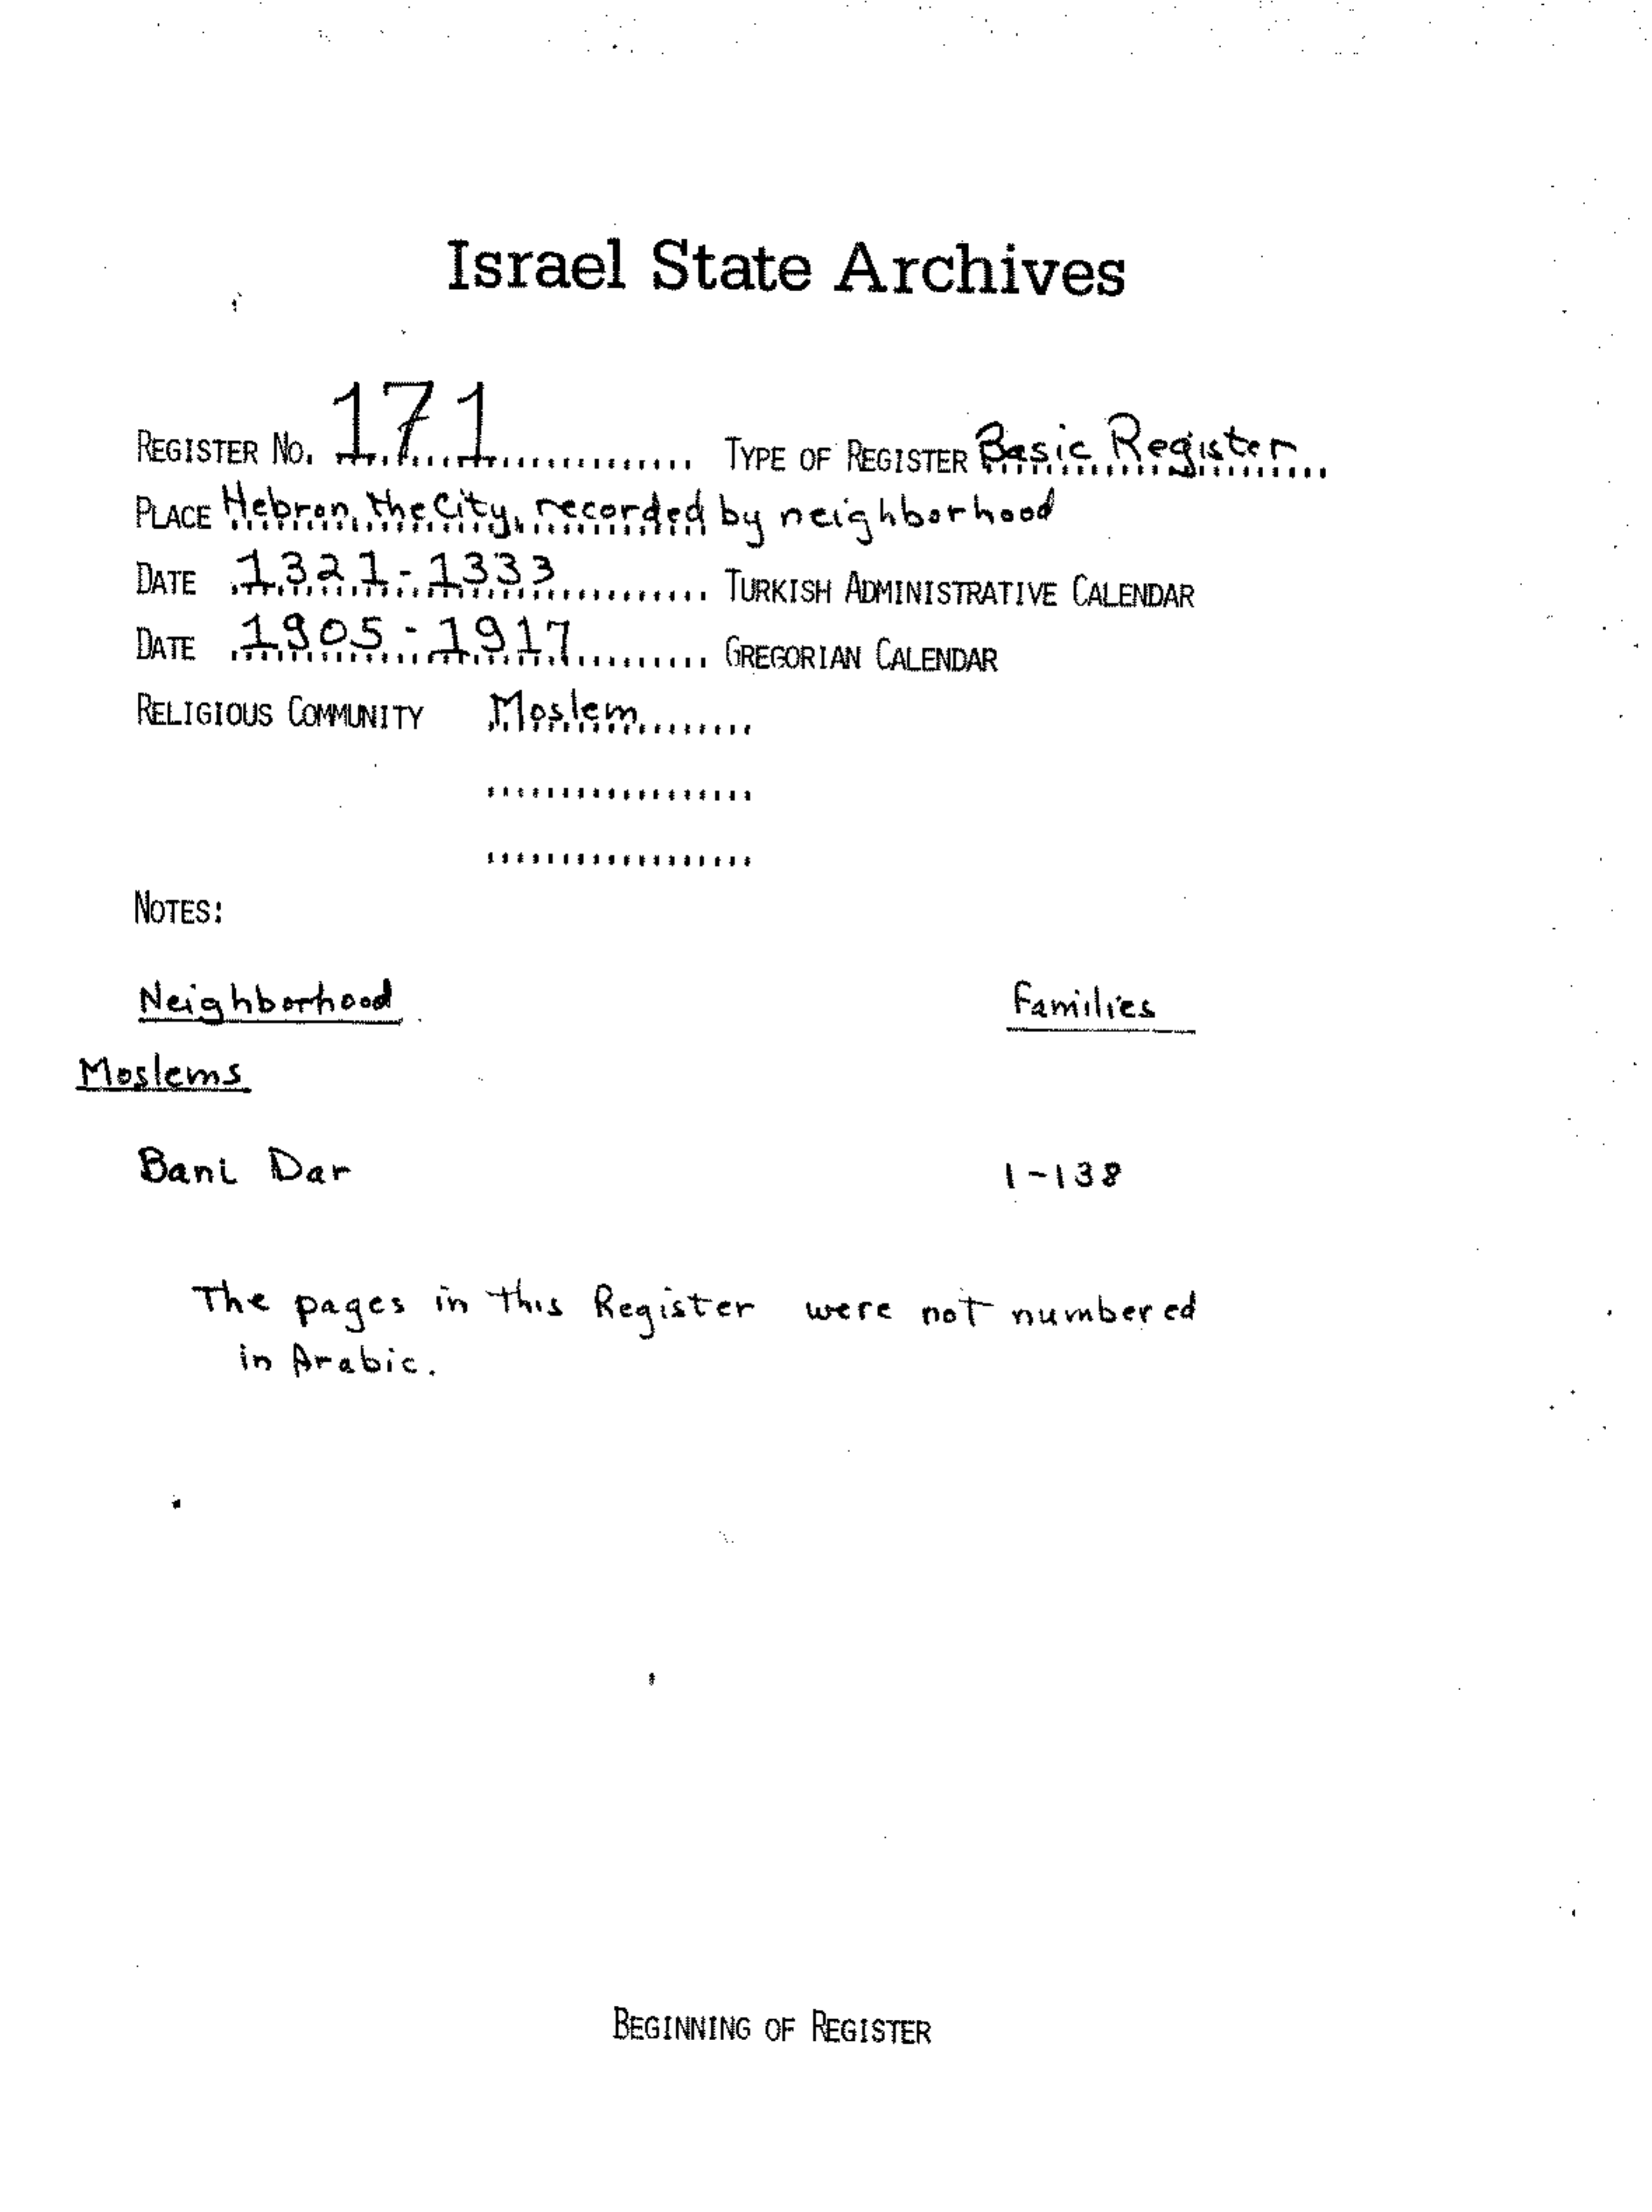 Israel State Archives
REGISTER No. 171 TYPE OF REGISTER Basic Register
PLACE Hebron, the City, recorded by neighborhood
DATE 1321-1333 TURKISH ADMINISTRATIVE CALENDAR
DATE 1905-1917 GREGORIAN CALENDAR
RELIGIOUS COMMUNITY Moslem
NOTES:
Neighborhood Families
Moslems
Bani Dar 1-138
The pages in this Register were not numbered
in Arabic.
BEGINNING OF REGISTER